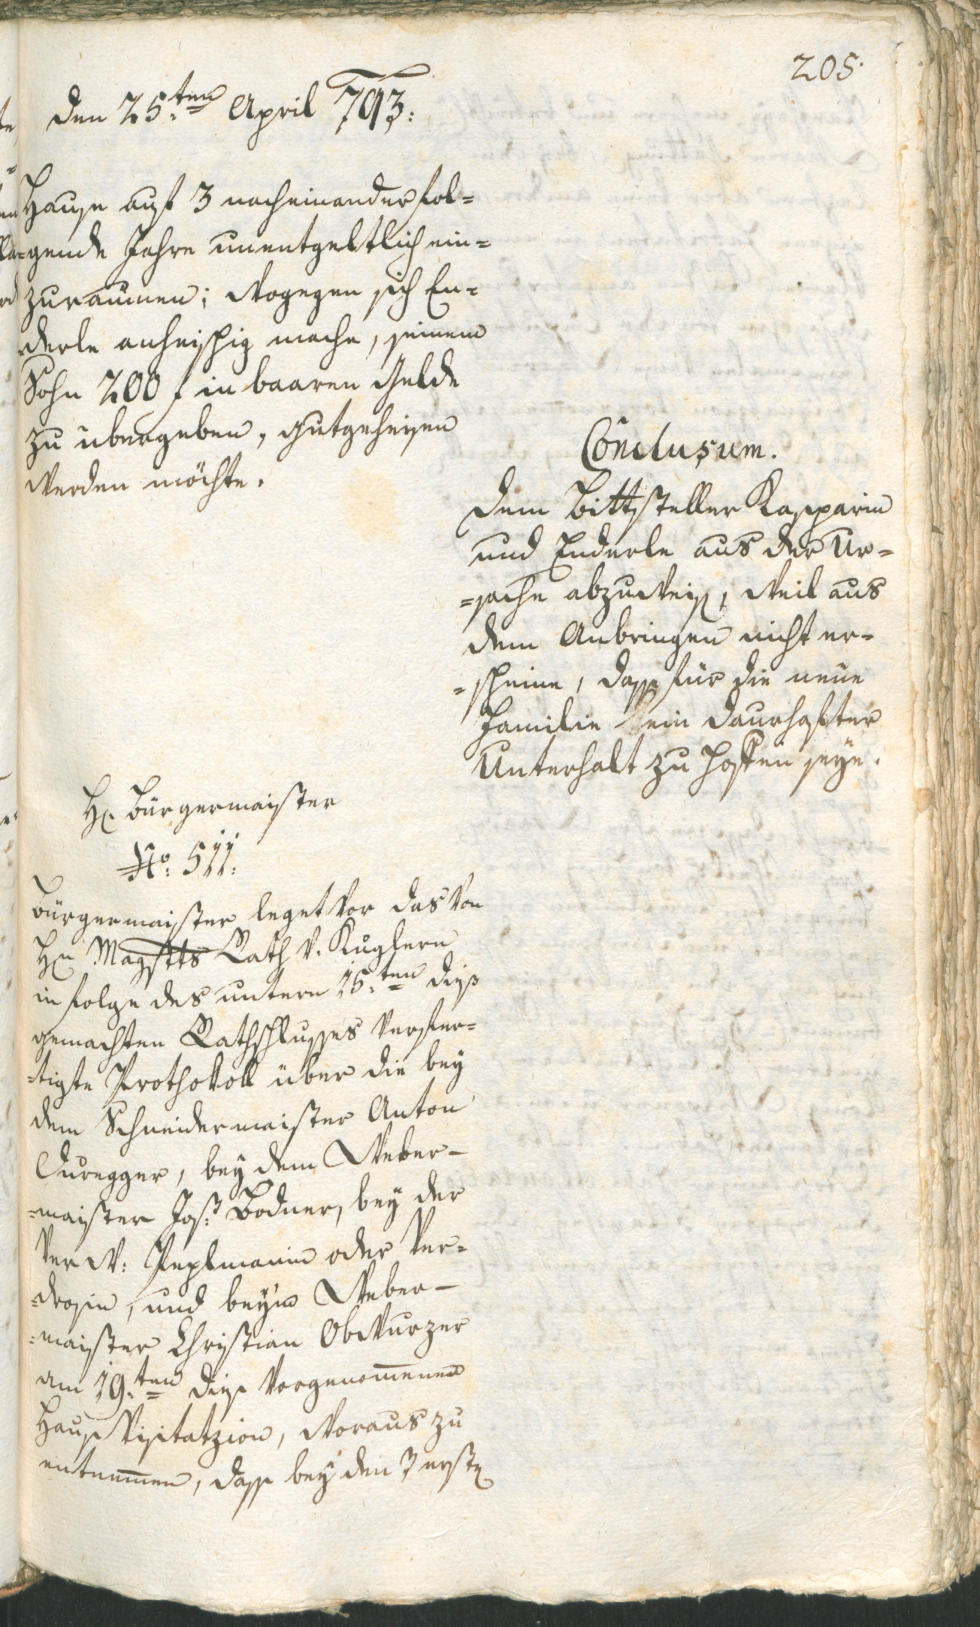 205.
Den 25:ten April 793:
Hause auf 3 nacheinander fol-
gende Jahre unentgeltlich ein-
zuraumen; wogegen sich En-
derle anheischig mache, seinem
Sohn 200 f in baaren Gelde
zu übergeben, gutgeheisen
werden möchte.
Conclusum.
Dem Bittsteller Kasparin
und Enderle aus der Ur-
-sache abzuweisen, weil aus
dem Anbringen nicht er-
-scheine, dass für die neue
Familie kein daurhafter
Unterhalt zu hoffen seÿe.
H: Bürgermaister
No: 511:
Bürgermaister leget vor das von
Hn Magstts Rath v. Kuglern
in folge des untern 15:ten diß
gemachten Rathschlusses verfer-
-tigte Prothokoll über die beÿ
dem Schneidermaister Anton
Duregger, beÿ dem Weber-
-maister Jos: Bodner, beÿ der
verw: Peplmanin oder Ver-
-drosin, und beÿm Weber-
-maister Christian Obwurzer
am 19:ten diß vorgenom̅enen
Haus Visitatzion, woraus zu
entnem̅en, dass beÿ den 3 erstn